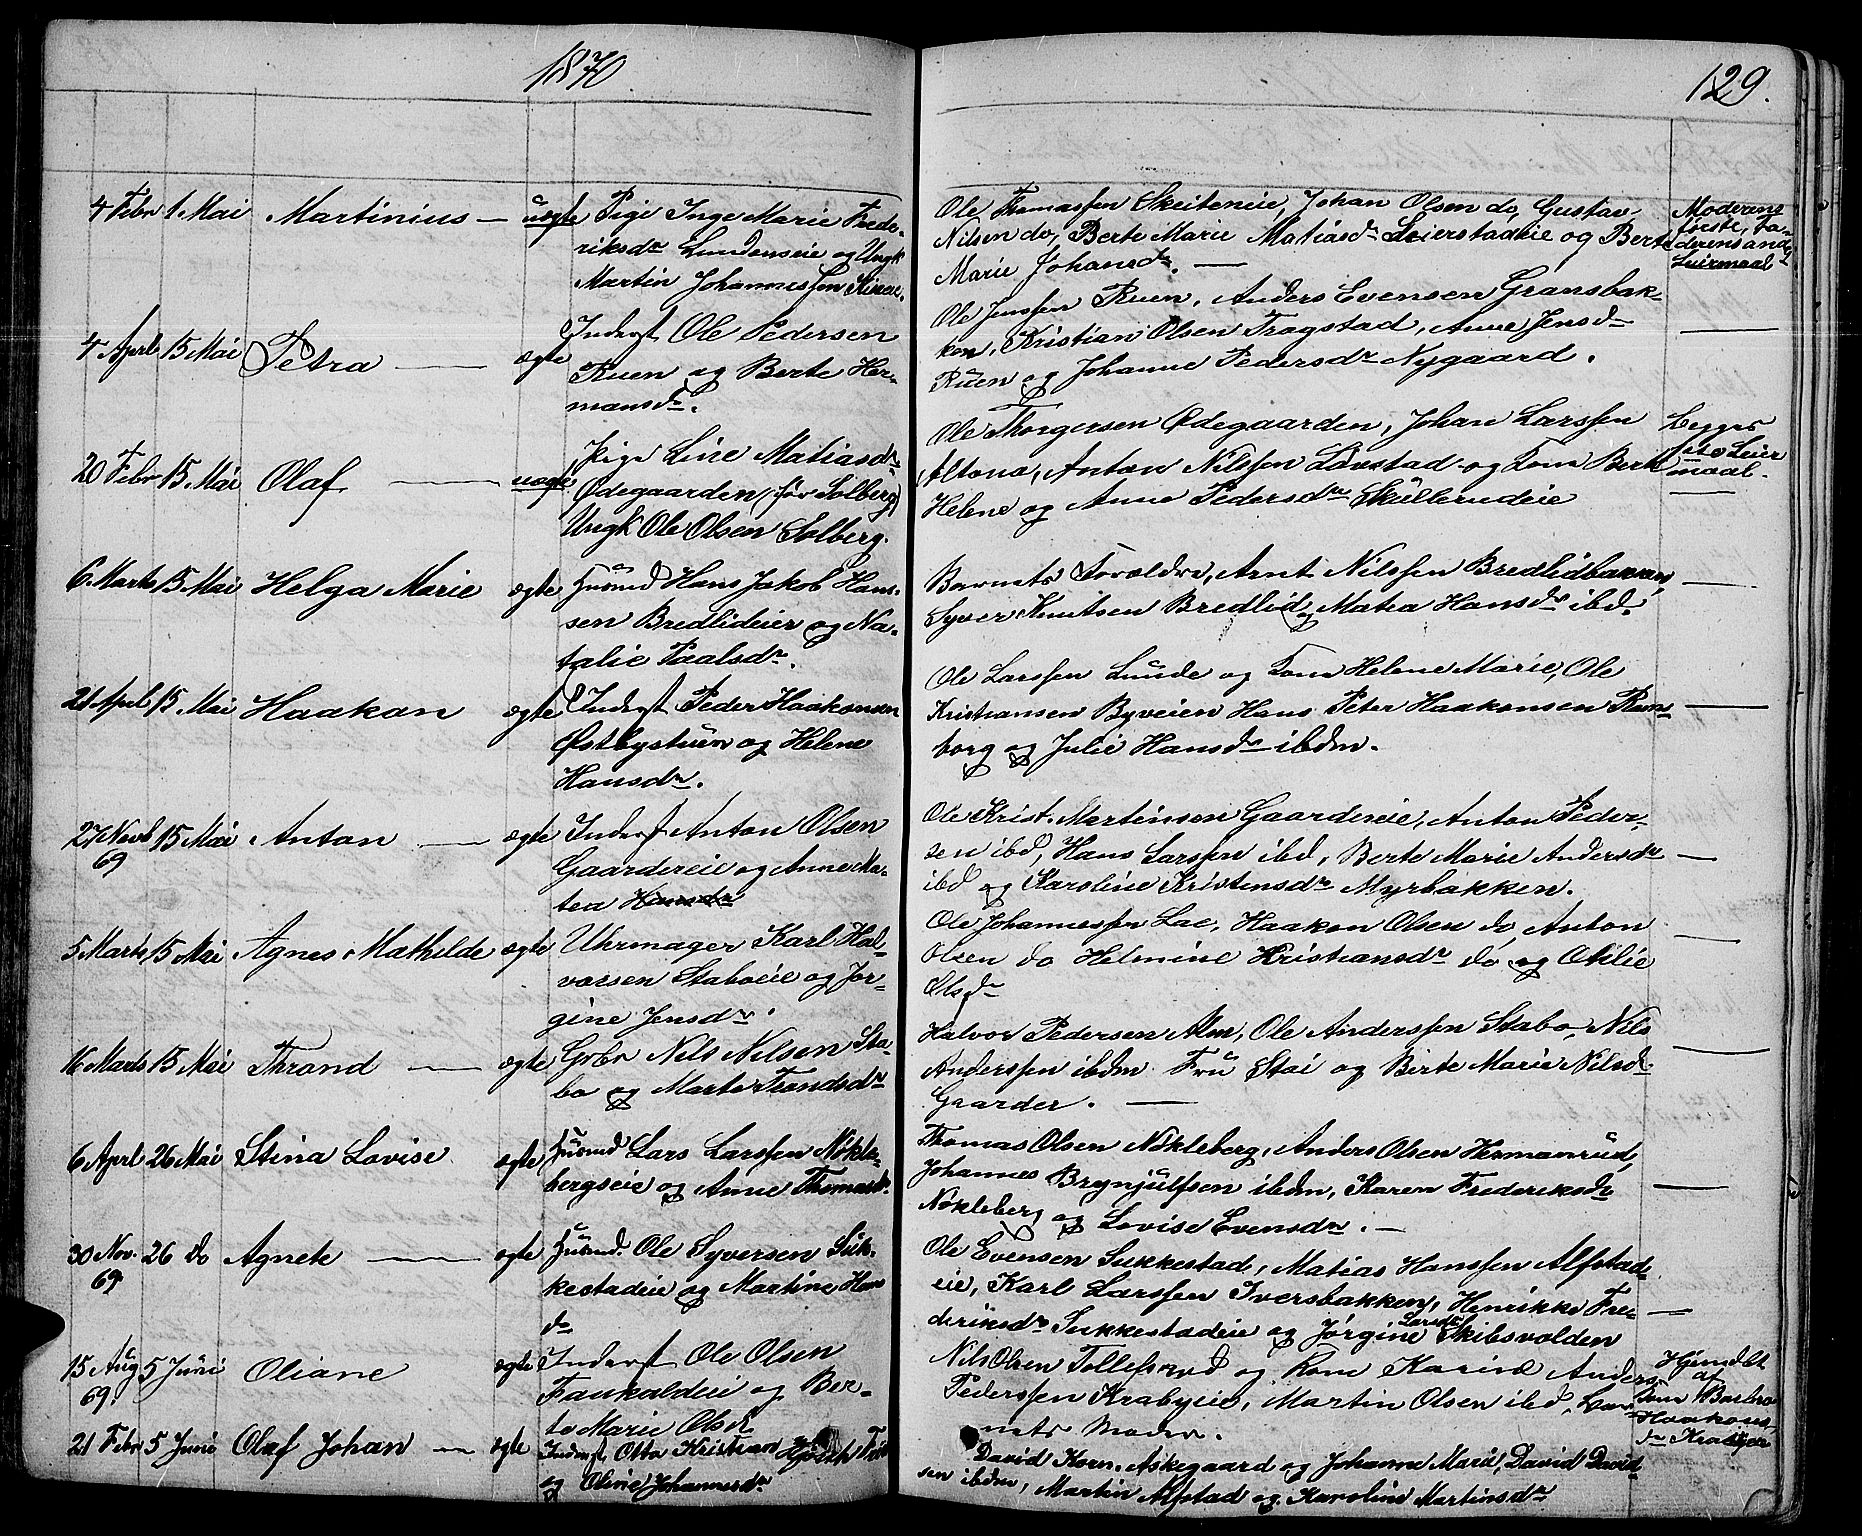 1870
129.
4 Febr 1 Mai Martinius — uægte Pige Inge Marie Frede-
riksdr Lundenseie og Ungk
Martin Johannessen
Ole Thomassen Skeiteneie, Johan Olsen do, Gustav
Nilsen do, Berte Marie Matiasdr og Berte
Marie Johansdr. —
Moderens
første, fa-
derens andet
Leiermaal
4 Aprl 15 Mai Petra — ægte Inderst Ole Pedersen
Ruen og Berte Her-
mansdr.
Ole Jenssen Ruen, Anders Evensen Gransbak-
ken, Kristian Olsen Trogstad, Anne Jensdr
Ruen og Johanne Pedersdr Nygaard.
20 Febr 15 Mai Olaf — uægte Pige Line Matiasdr
Ødegaarden (før Solberg)
Ungk Ole Olsen Solberg.
Ole Thorgersen Ødegaarden, Johan Larssen
Altona, Anton Nilssen Lønstad og Kone Berte
Helene og Anne Pedersdr Skullerudeie
Begges
1ste Leier
maal.
6 Marts 15 Mai Helga Marie ægte Husmd Hans Jakob Hans-
sen Bredlideier og Na-
talie Paalsdr.
Barnets Forældre, Arnt Nilssen Bredlidbakken,
Syver Knutsen Bredlid, Matea Hansdr ibd.
21 April 15 Mai Haakon ægte Inderst Peder Haakonsen
Østbystuen og Helene
Hansdr.
Ole Larssen Lunde og Kone Helene Marie, Ole
Kristiansen Byveien Hans Peter Haakonsen Rams-
borg og Julie Hansdr ibdm.
27 Novb 15 Mai Anton — ægte Inderst Anton Olsen
69 Gaardereie og Anne Ma-
tea Hansdr
Ole Krist. Martinsen Gaardereie, Anton Peder-
sen ibd, Hans Larssen ibd, Berte Marie Andersdr
ibd og Karoline Kristensdr Myrbakken.
5 Marts 15 Mai Agnes Mathilde ægte Uhrmager Karl Hal-
vorsen Staboeie og Jør-
gine Jensdr.
Ole Johannessen Lae, Haakon Olsen do, Anton
Olsen do Helmine Kristiansdr do og Otilie
Olsdr
16 Marts 15 Mai Thrond — ægte Grbr Nils Nilsen Sta-
bo og Marte Trondsdr
Halvor Pedersen Alm, Ole Anderssen Stabo, Nils
Anderssen ibdm Fru Stai og Birte Marie Nilsdr
Gaarder. —
6 Aprl 26 Mai Stina Lovise ægte Husmd Lars Larssen Nøkle-
bergseie og Anne Thomasdr.
Thomas Olsen Nøkleberg, Anders Olsen Hermanrud,
Johannes Brynjulfsen ibdm, Karen Frederiksdr
Nøkleberg og Lovise Evensdr. —
30 Nov. 26 do Agnete — ægte Husmd. Ole Syversen Suk-
69 kestadeie og Martine Hans
dr
Ole Evensen Sukkestad, Matias Hanssen Alfstad-
eie, Karl Larssen Iversbakken, Henrikke Fre-
deriksdr Sukkestadeie og Jørgine Larsdr Skibsvolden
15 Aug 5 Juni Oliane ægte Inderst Ole Olsen
69. Faukaldeie og Ber-
te Marie Olsdr
Nils Olsen Tollefsrud og Kone Karine Anders
Pederssen Krabyeie, Martin Olsen ibd, Bar-
nets Moder.
Hjemdbt
af
Jom Barbro
Haakons
dr Krabyeie
21 Febr 5 Juni Olaf Johan — ægte Inderst Otto Kristian
og Oline Johannesdr
David Korn. Askegaard og Johanne Marie, David David-
sen ibdm, Martin Alfstad og Karoline Martinsdr